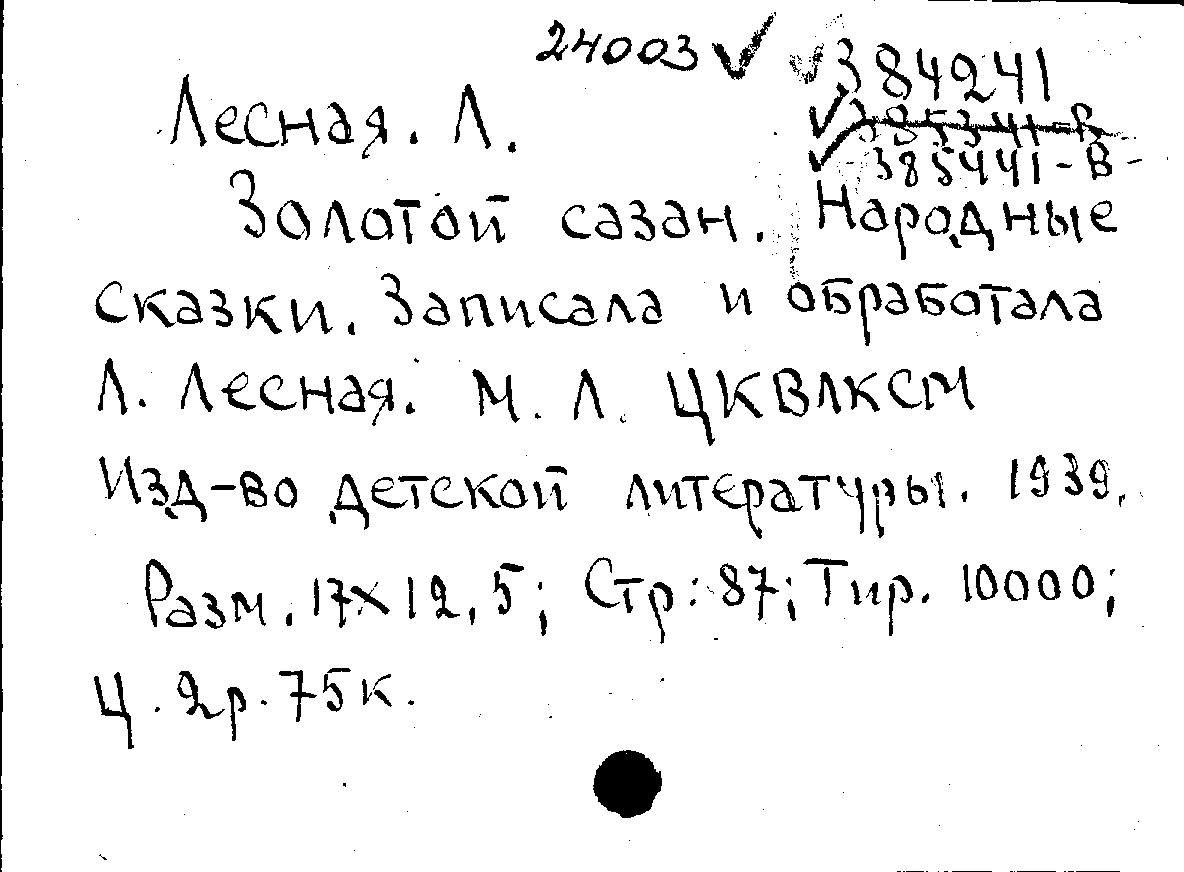 24003 ✓ ✓ 384241
Лесная. Л. ✓ 385341-В
✓ 385441-В-
Золотой сазан. Народные
сказки. Записала и обработала
Л. Лесная. М. Л. ЦКВЛКСМ
Изд-во детской литературы. 1939.
Разм. 17×12,5; Стр: 87; Тир. 10000;
Ц. 2р. 75к.